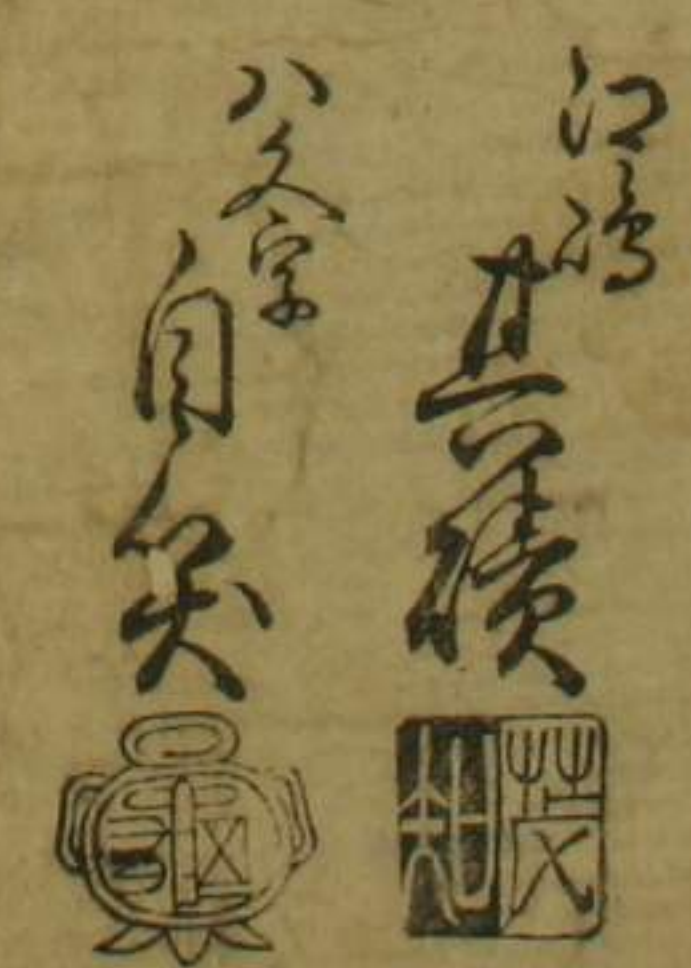 江嶋
其磧
八文字
自笑